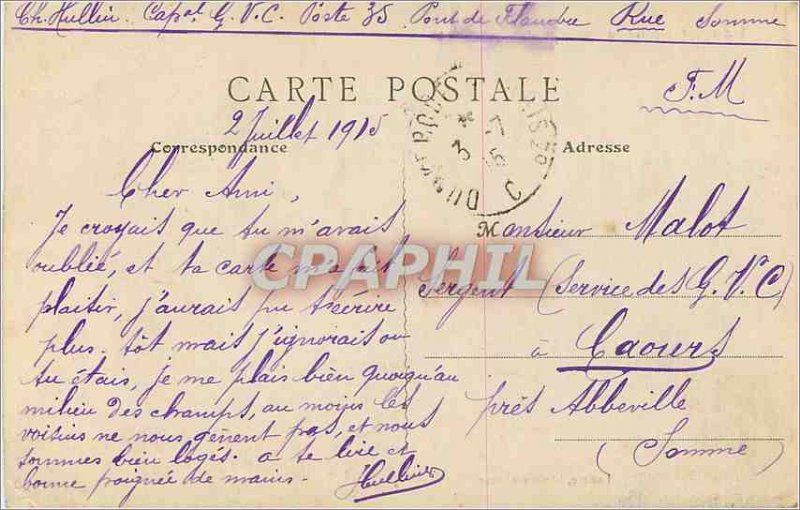 Ch. Hullin. Cap.al G.V.C. Poste 35 Pont de Flandre Rue Somme
CARTE POSTALE
F.M
2 Juillet 1915
Correspondance
Adresse
Cher Ami,
Je croyais que tu m'avais
oublié, et ta carte m'a fait
plaisir, j'aurais pu t'écrire
plus. tôt mais j'ignorais ou
tu étais, je me plais bien quoiqu'au
milieu des champs, au moins les
voisins ne nous gênent pas, et nous
sommes bien logés. a te lire et
bonne poignée de mains. Hullin
Monsieur Malot
Sergent (Service des G.V.C)
à Caours
près Abbeville
(Somme)
CPAPHIL